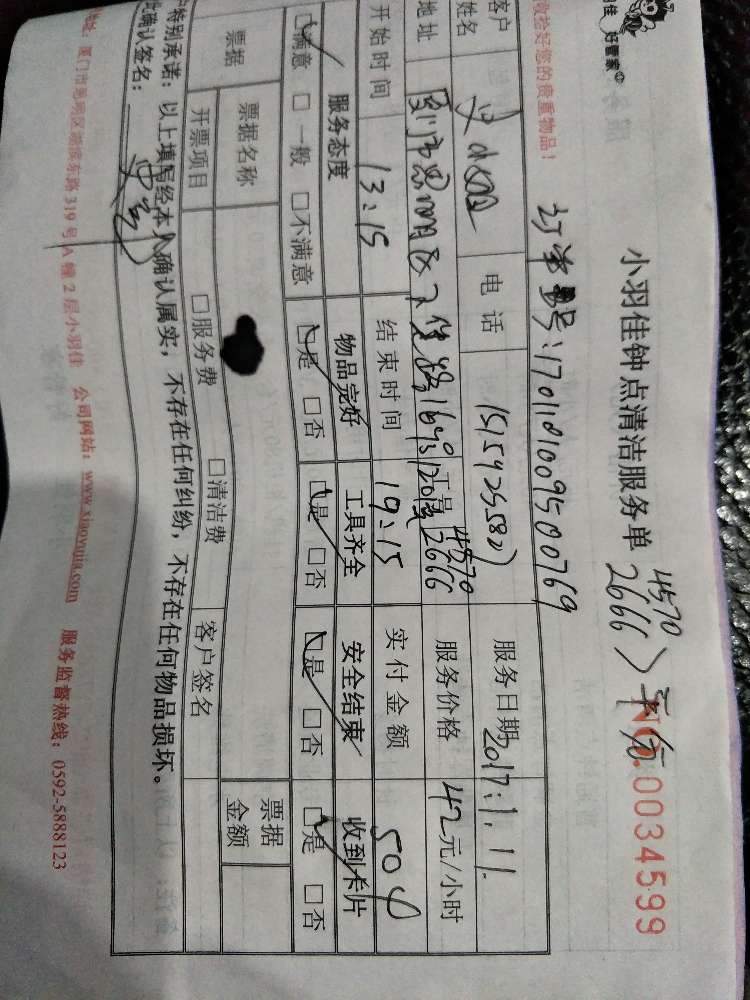 好管家
小羽佳钟点清洁服务单
4570
2666 〉平分
NO.0034599
收拾好您的贵重物品！
订单号：1701181009500769
客户姓名
电话
服务日期 2017.1.1
地址 厦门市思明区
工号 4570
2666
服务价格 42元/小时
开始时间 13:15 结束时间 19:15 实付金额 504
服务态度 物品完好 工具齐全 安全结束 收到卡片
☑满意 □一般 □不满意 ☑是 □否 ☑是 □否 ☑是 □否 ☑是 □否
票据 票据名称 票据金额
开票项目 □服务费 □清洁费 客户签名
特别承诺：以上填写经本人确认属实，不存在任何纠纷，不存在任何物品损坏。
此确认签名：
地址：厦门市思明区湖滨东路319号A幢2层小羽佳 公司网站：www.xiaoyujia.com 服务监督热线：0592-5888123